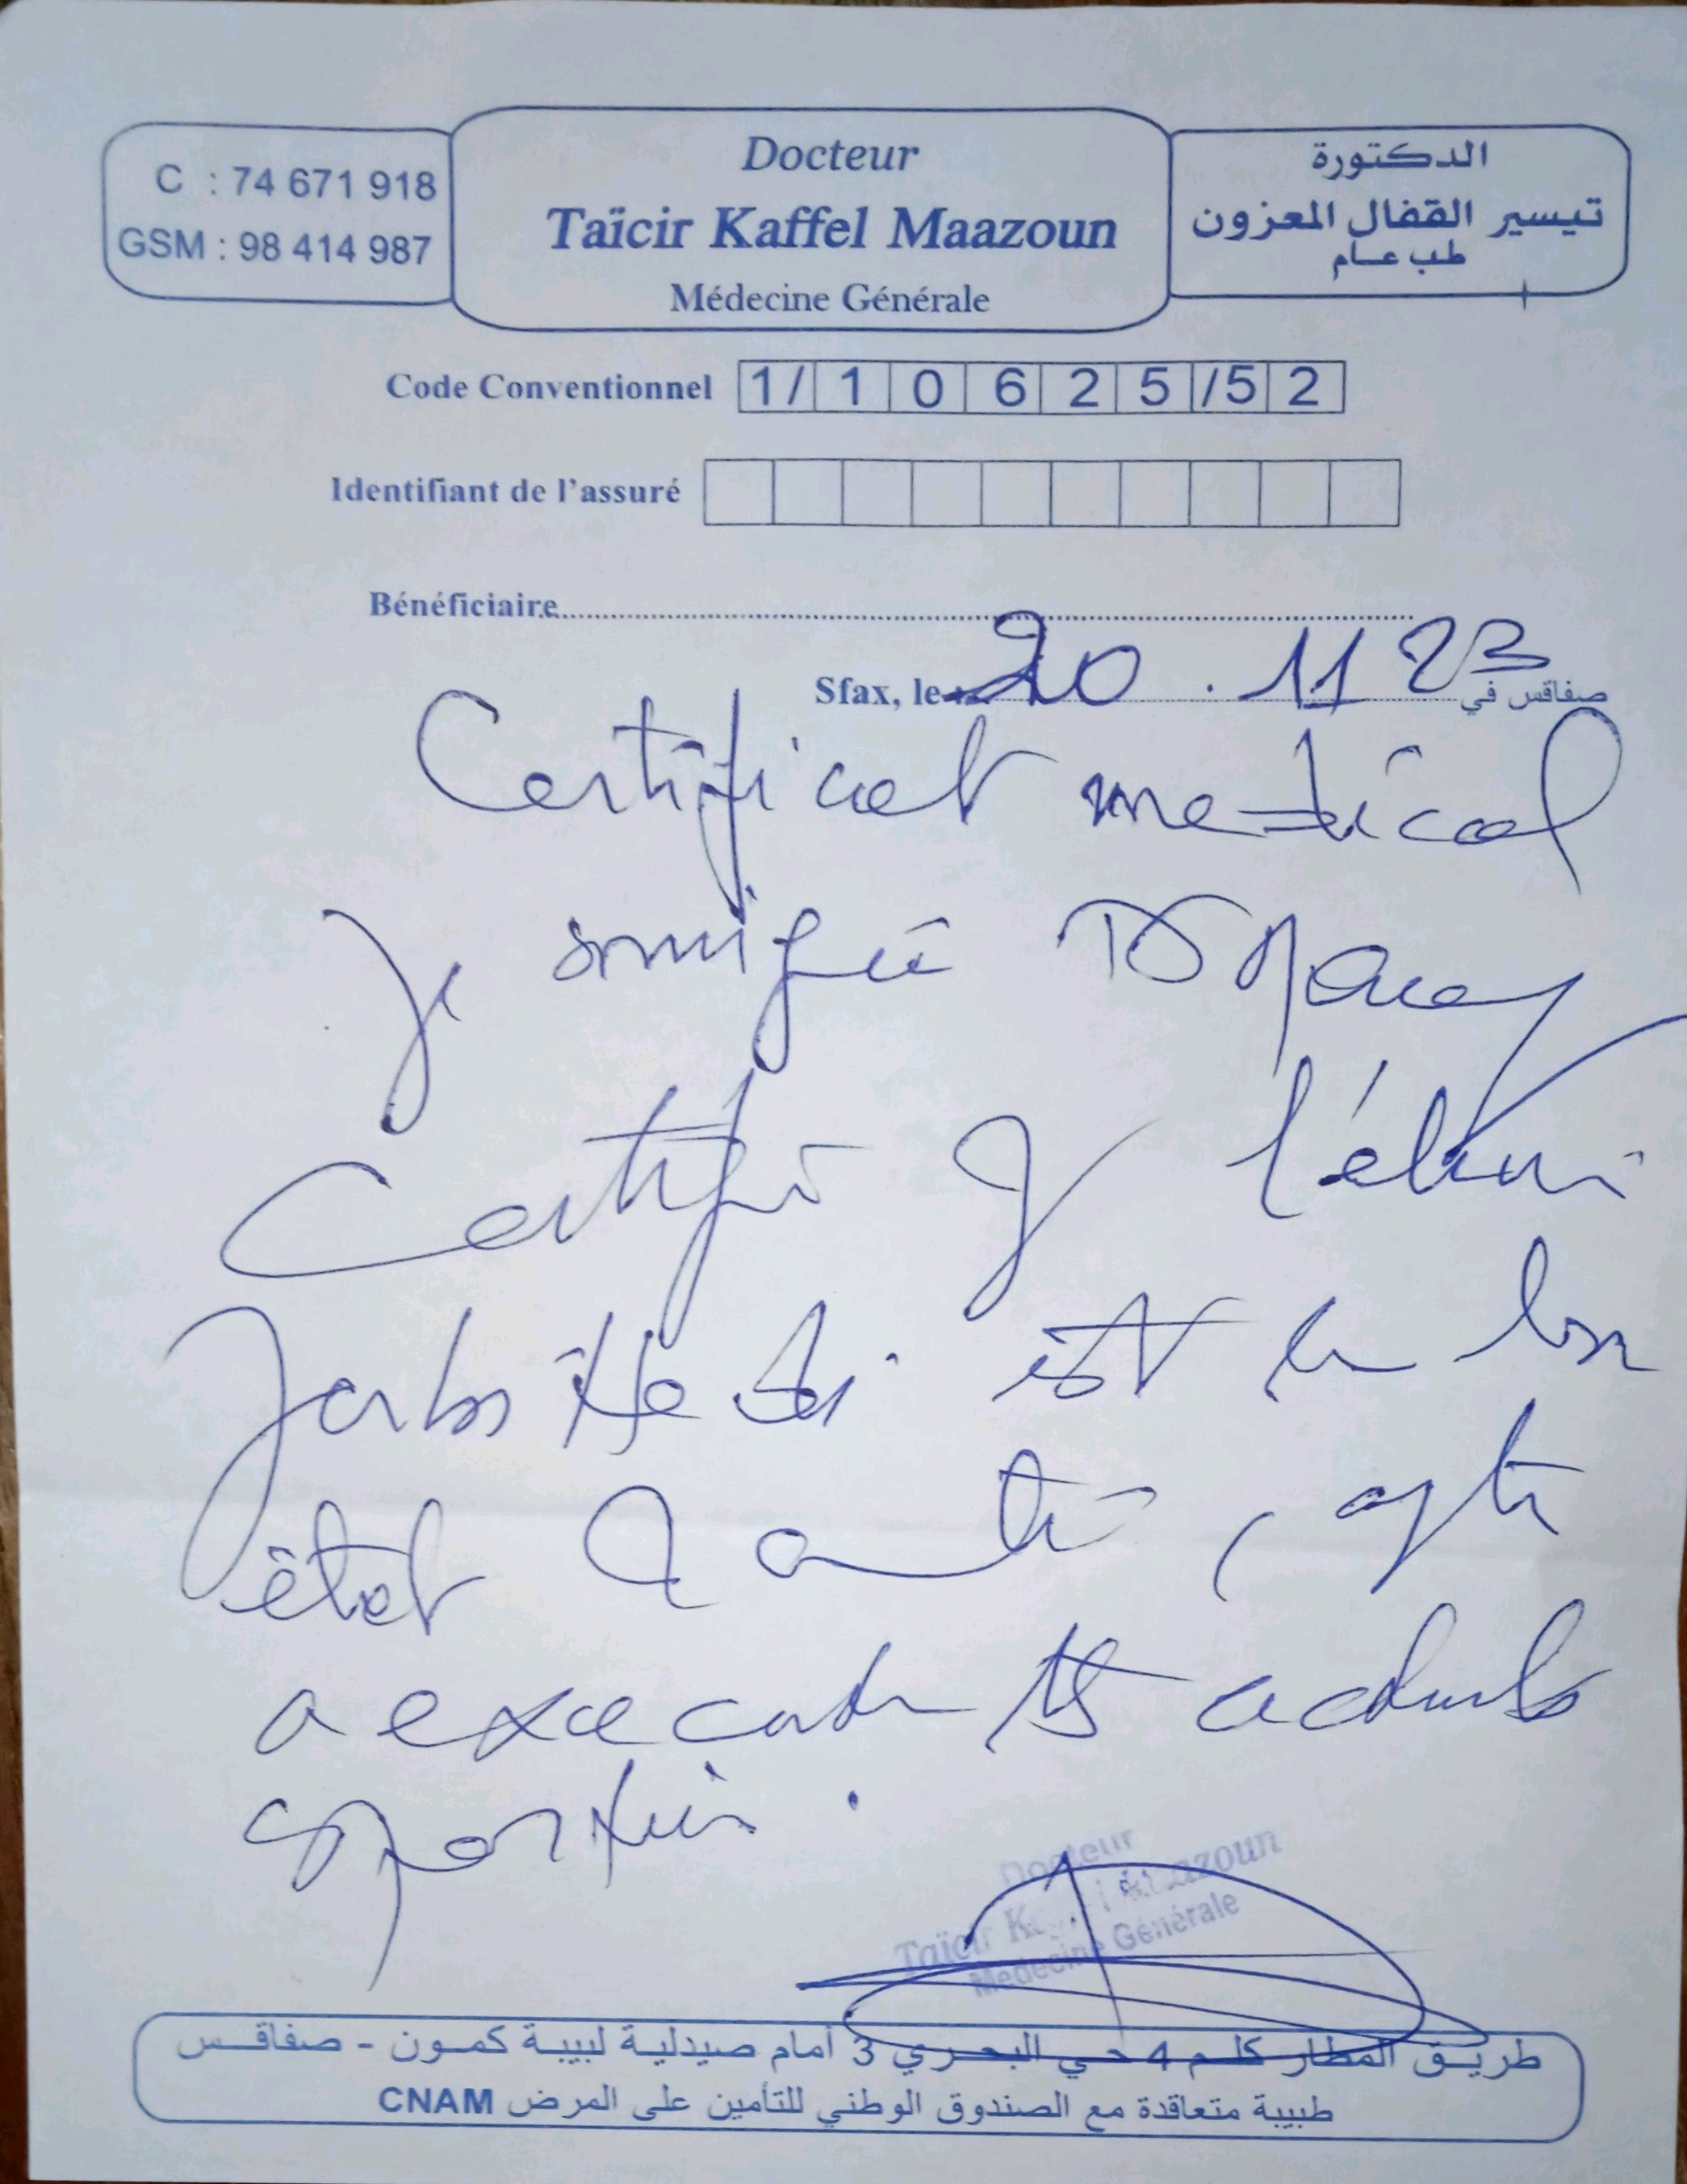 C : 74 671 918
GSM : 98 414 987
Docteur
Taïcir Kaffel Maazoun
Médecine Générale
الدكتورة
تيسير القفال المعزون
طب عام
Code Conventionnel 1/10625/52
Identifiant de l'assuré
Bénéficiaire
Sfax, le 20.11 23 صفاقس في
Certificat medical
Je soussigné
Certifie q l'élève
Hedi est en bon
état santé, apte
a executer ts
sportives.
Docteur
Taïcir K Maazoun
Médecine Générale
طريق المطار كلم 4 حي البحري 3 أمام صيدلية لبيبة كمون - صفاقس
طبيبة متعاقدة مع الصندوق الوطني للتأمين على المرض CNAM